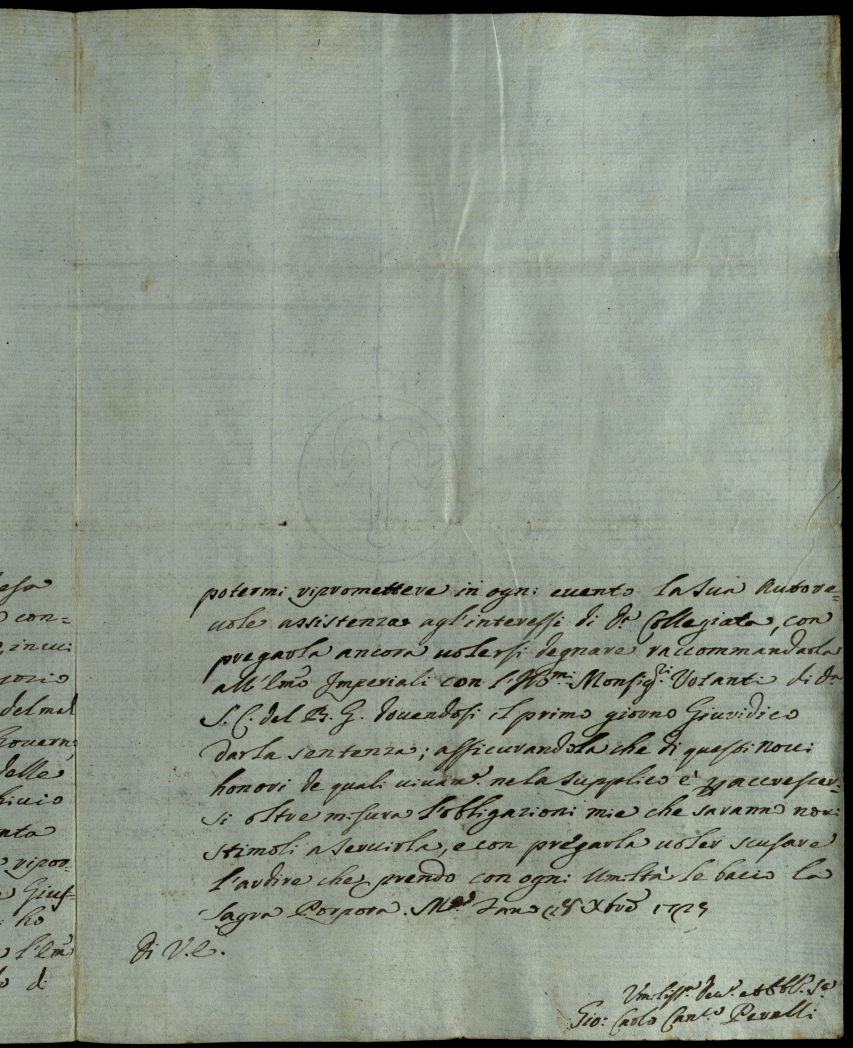 esa
con=
, in cui
del mal
Govern:
delle
ripor
Gius=
ho
l'Em.o
di
potermi ripromettere in ogni evento la sua Autore=
uole assistenza agl'interessi di d.a Collegiata, con
pregarla ancora uolersi degnare raccommandarla
all'Em.o Imperiali con l'Ill.mi Monsig.ri Votanti di d.a
S. C. del B. G. douendosi il primo giorno Giuridico
dar la sentenza; assicurandola che di questi noui
honori de quali uiuam.te ne la supplico è p accrescer=
si oltre misura l'obligazioni mie che saranno noui
stimoli a seruirla, e con pregarla uoler scusare
l'ardire che prendo con ogni Umiltà le bacio la
Sagra Porpora. Xbre
di V. E.
Vmiliss.o deu.o et obbl. Se.
Gio: Carlo Can.co Perelli